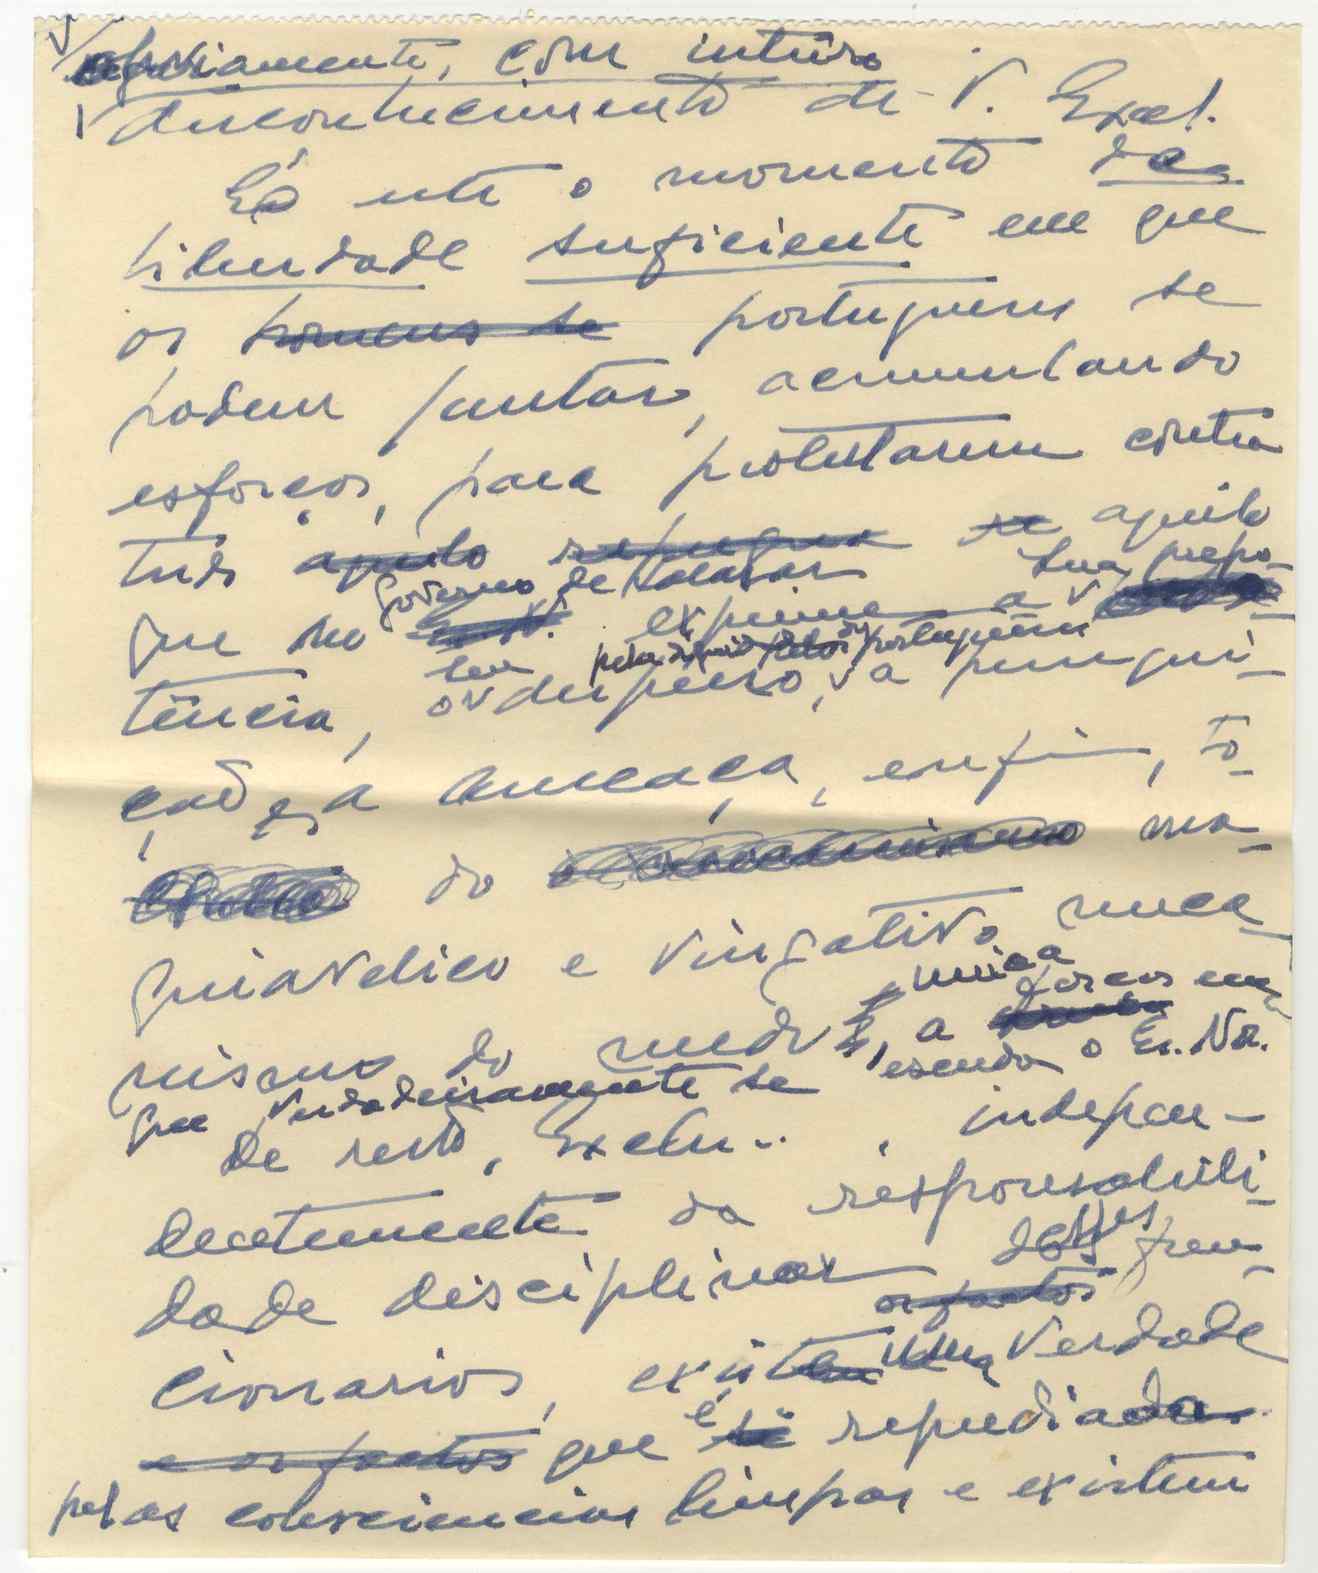 abusivamente, com inteiro
desconhecimento de V. Excl.
É este o momento da
liberdade suficiente em que
os homens se portugueses se
podem juntar, acumulando
esforços, para protestarem contra
tudo aquilo repugna se aquilo
que no Governo de Salazar exprime a sua prepo-
tência, o seu desprezo pela dignidade dos portugueses, a persegui-
ção, a ameaça, enfim, to-
do o maquiavelismo ma-
quiavélico e vingativo meca-
nismo do medo, a única forças em
que verdadeiramente se escuda o Es. No.
De resto, Excln.. , indepen-
dentemente da responsabili-
dade disciplinar desses fun-
cionarios, existe os factos uma verdade
e os factos que é se repudiada
pelas consciencias limpas e existem